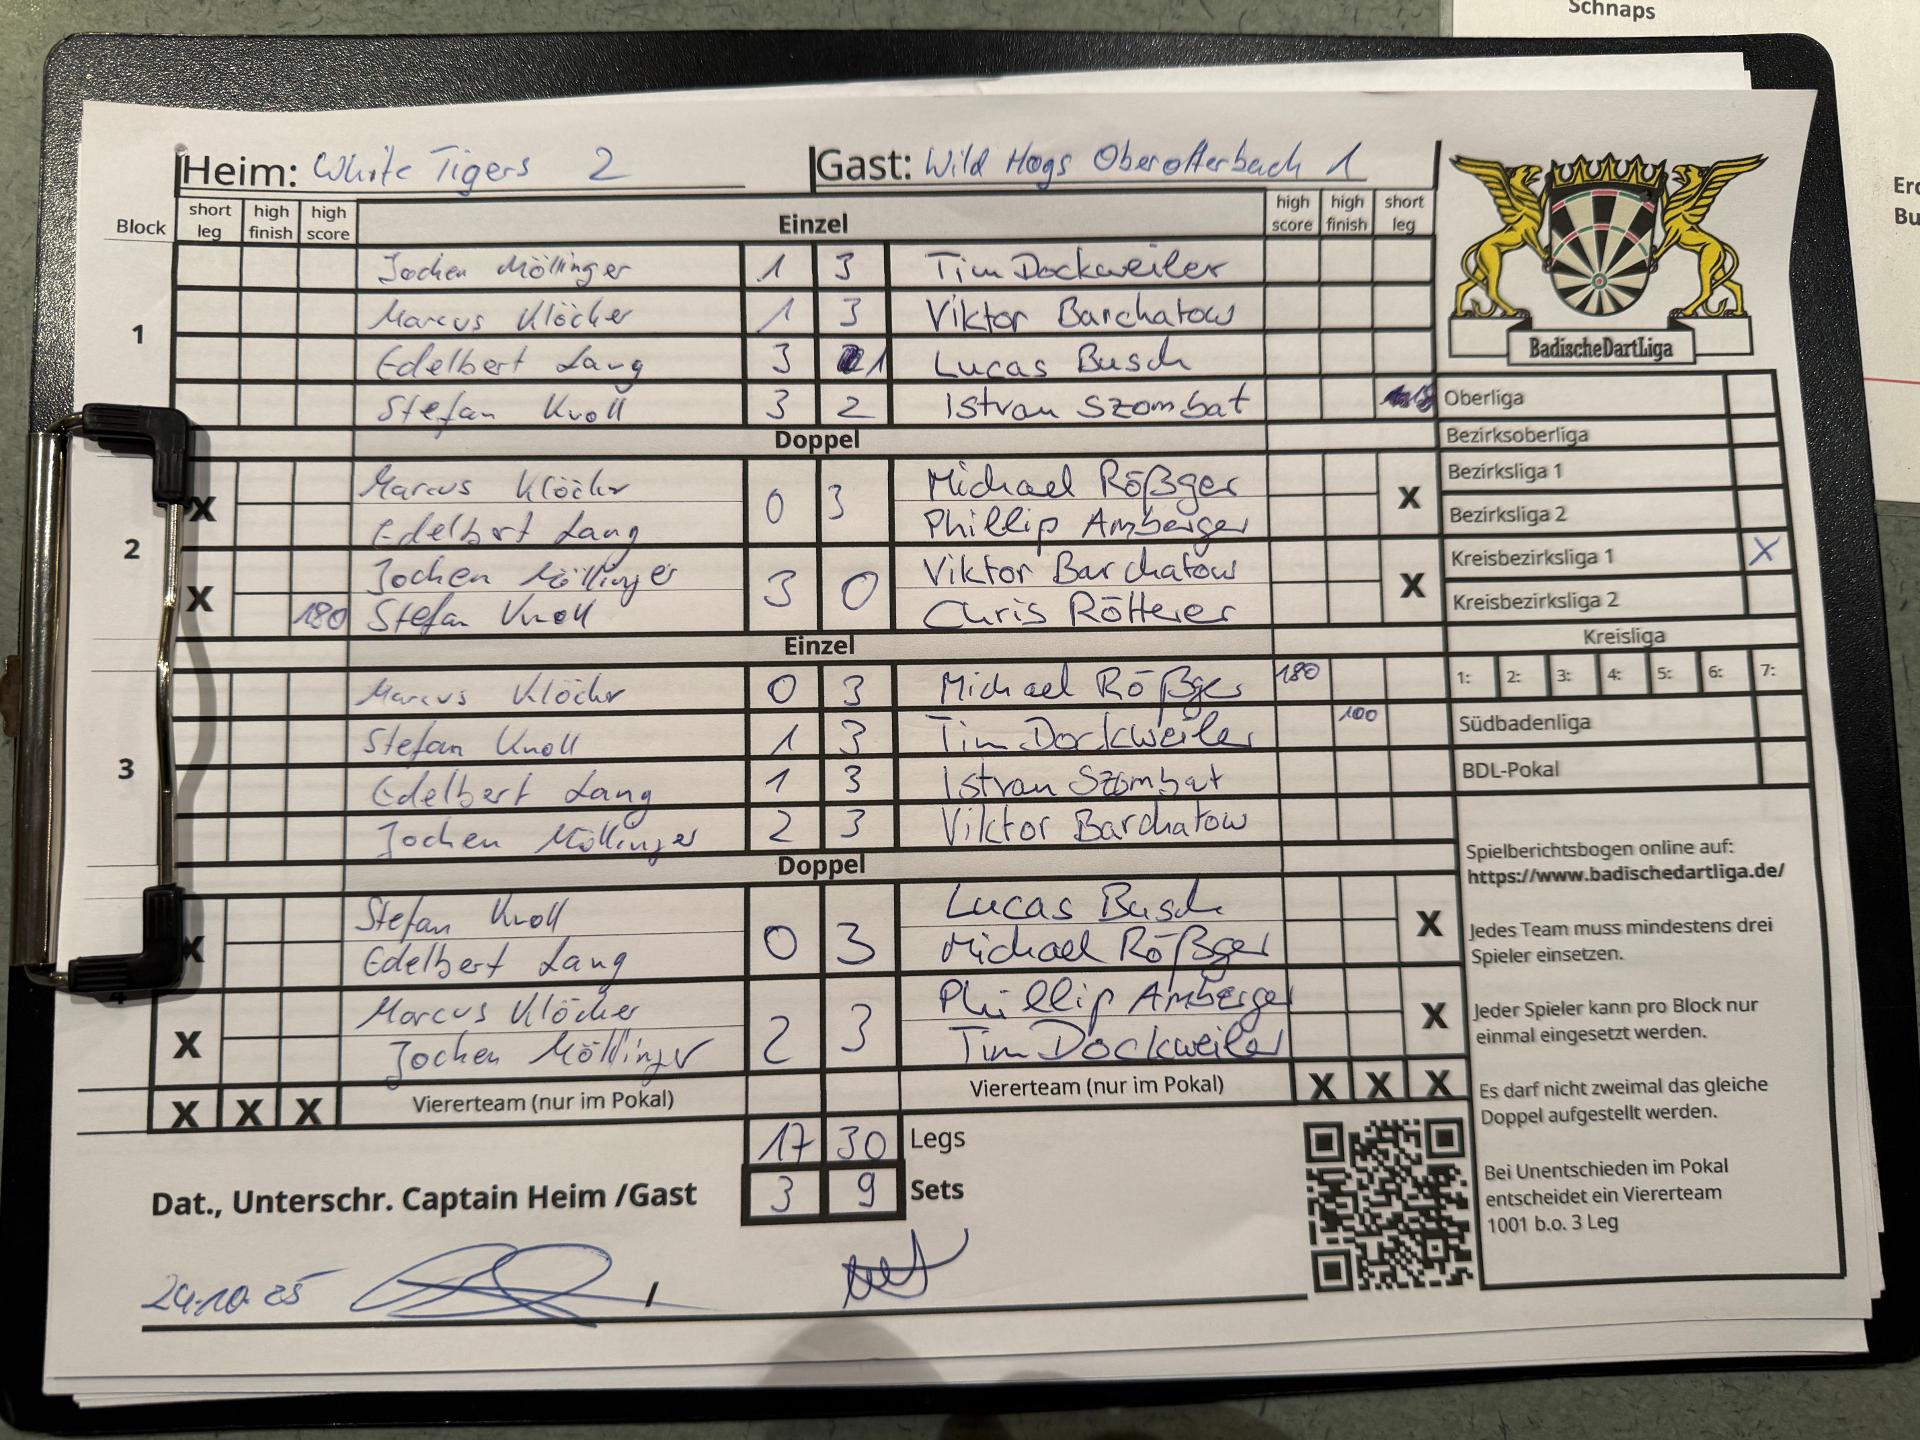 Schnaps
Heim: White Tigers 2 Gast: Wild Hogs Oberotterbach 1
Block short leg high finish high score Einzel high score high finish short leg
1
Jochen Möllinger 1 3 Tim Dockweiler
Marcus Klöcher 1 3 Viktor Barchatow
Edelbert Lang 3 1 Lucas Busch
Stefan Knoll 3 2 Istvan Szombat
Doppel
2
X Marcus Klöcher 0 3 Michael Rößger X
Edelbert Lang Phillip Amberger
X Jochen Möllinger 3 0 Viktor Barchatow X
180 Stefan Knoll Chris Rötterer
Einzel
3
Marcus Klöcher 0 3 Michael Rößger 180
Stefan Knoll 1 3 Tim Dockweiler 100
Edelbert Lang 1 3 Istvan Szombat
Jochen Möllinger 2 3 Viktor Barchatow
Doppel
4
X Stefan Knoll 0 3 Lucas Busch X
Edelbert Lang Michael Rößger
X Marcus Klöcher 2 3 Phillip Amberger X
Jochen Möllinger Tim Dockweiler
X X X Viererteam (nur im Pokal) Viererteam (nur im Pokal) X X X
17 30 Legs
3 9 Sets
Dat., Unterschr. Captain Heim /Gast
24.10.25 /
BadischeDartLiga
Oberliga
Bezirksoberliga
Bezirksliga 1
Bezirksliga 2
Kreisbezirksliga 1 X
Kreisbezirksliga 2
Kreisliga
1: 2: 3: 4: 5: 6: 7:
Südbadenliga
BDL-Pokal
Spielberichtsbogen online auf:
https://www.badischedartliga.de/
Jedes Team muss mindestens drei
Spieler einsetzen.
Jeder Spieler kann pro Block nur
einmal eingesetzt werden.
Es darf nicht zweimal das gleiche
Doppel aufgestellt werden.
Bei Unentschieden im Pokal
entscheidet ein Viererteam
1001 b.o. 3 Leg